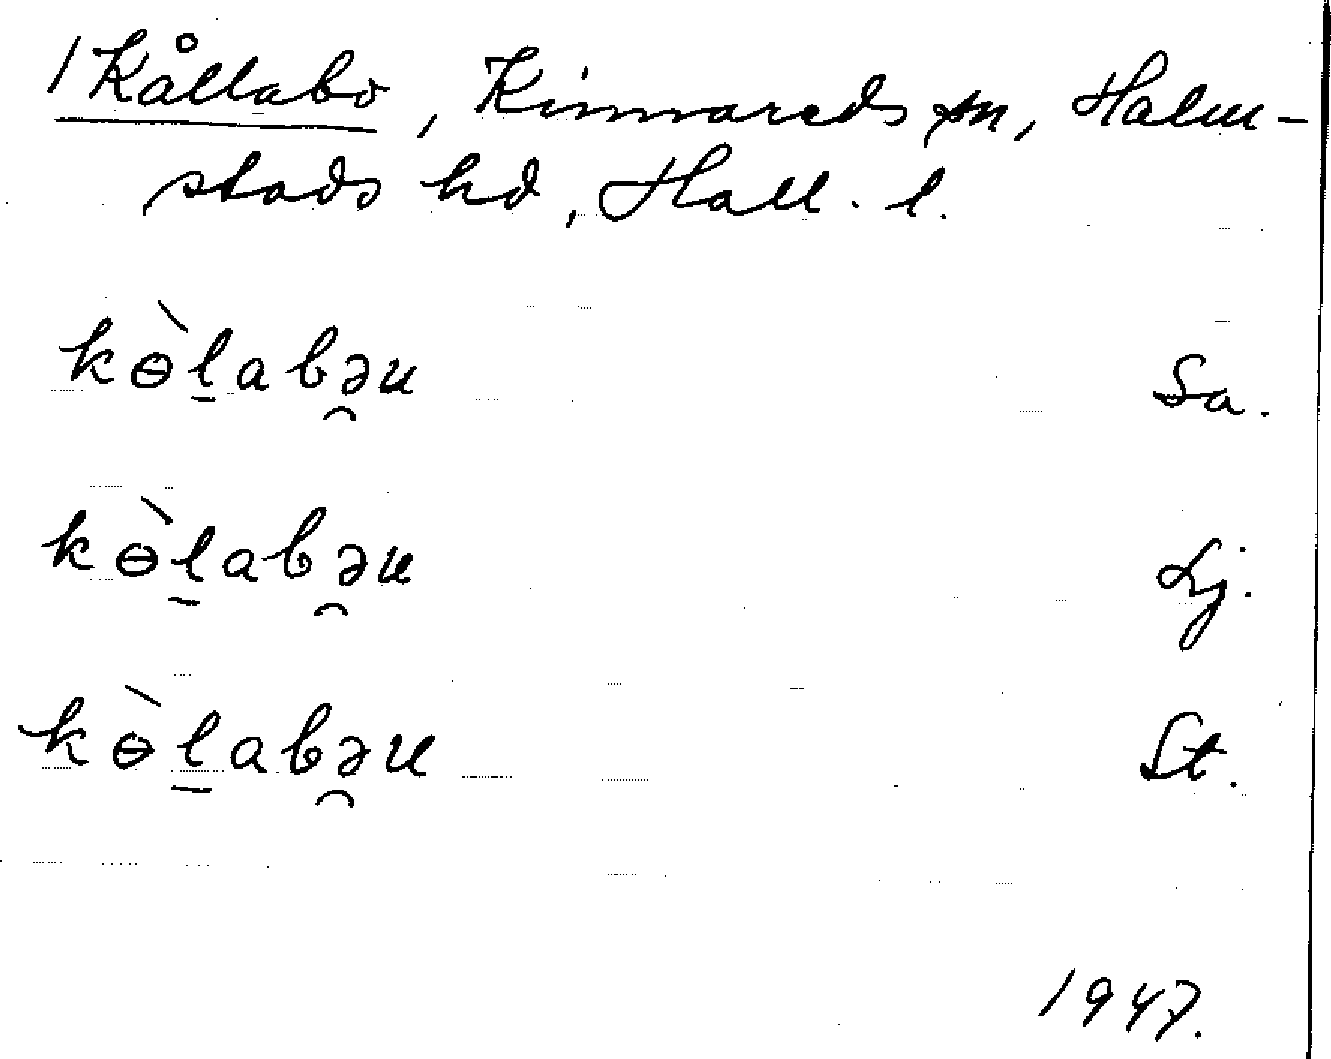 / Kållabo, Kinnareds sn, Halm-
stads hd, Hall. l.
kɵ̀l̠abə̯u Sa.
kɵ̀l̠abə̯u Lj.
kɵ̀l̠abə̯u St.
1947.